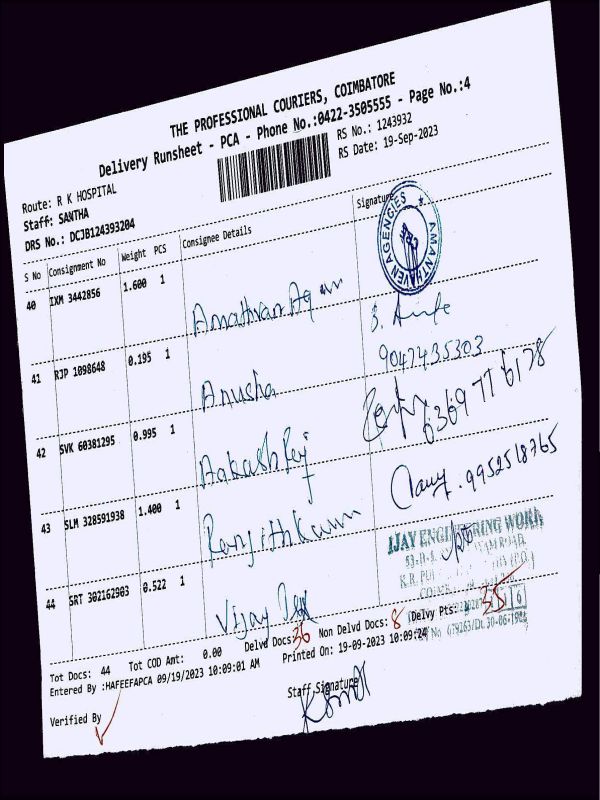 THE PROFESSIONAL COURIERS, COIMBATORE
Delivery Runsheet - PCA - Phone No.:0422-3505555 - Page No.:4
RS No.: 1243932
RS Date: 19-Sep-2023
Route: R K HOSPITAL
Staff: SANTHA
DRS No.: DCJB124393204
S No Consignment No Weight PCS Consignee Details Signature
40 IXM 3442856 1.600 1
MANTHAVEN AGENCIES
41 RJP 1098648 0.195 1 Anusha
9047435303
42 SVK 60381295 0.995 1 Aakash Raj
6369776178
43 SLM 328591938 1.400 1 Ranjithkumar
9952518765
44 SRT 302162903 0.522 1 Vijay
IJAY ENGINEERING WORK
Tot Docs: 44 Tot COD Amt: 0.00 Delvd Docs: 36 Non Delvd Docs: 8 Delvy Pts: 35
Entered By :HAFEEFAPCA 09/19/2023 10:09:01 AM Printed On: 19-09-2023 10:09:24
Verified By
Staff Signature